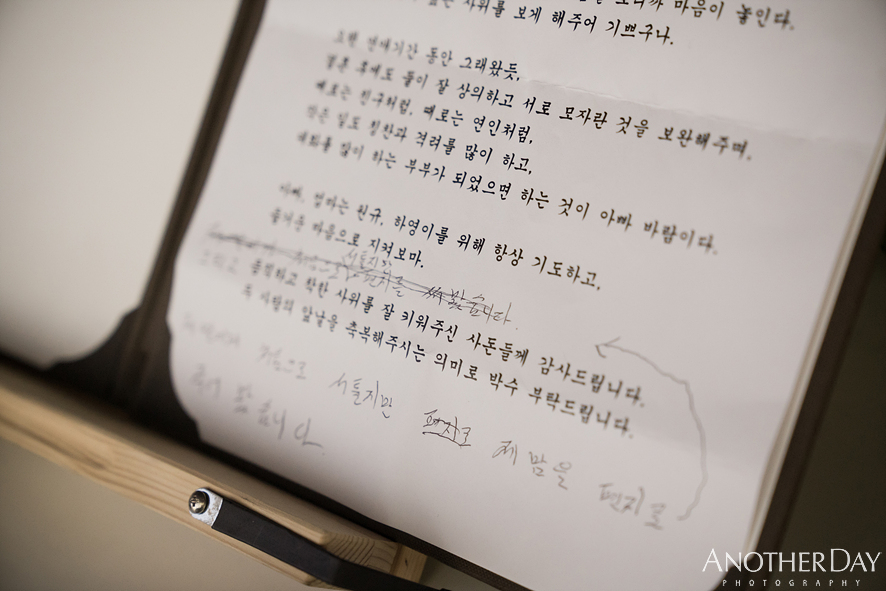 보니까 마음이 놓인다.
사위를 보게 해주어 기쁘구나.
오랜 연애기간 동안 그래왔듯,
결혼 후에도 둘이 잘 상의하고 서로 모자란 것을 보완해주며,
때로는 친구처럼, 때로는 연인처럼,
작은 일도 칭찬과 격려를 많이 하고,
대화를 많이 하는 부부가 되었으면 하는 것이 아빠 바람이다.
아빠, 엄마는 원규, 하영이를 위해 항상 기도하고,
즐거운 마음으로 지켜보마.
서툴지만
편지를 써 봤습니다.
훌륭하고 착한 사위를 잘 키워주신 사돈들께 감사드립니다.
두 사람의 앞날을 축복해주시는 의미로 박수 부탁드립니다.
처음으로 서툴지만 편지로 제 맘을 편지로
봤습니다.
ANOTHERDAY
PHOTOGRAPHY